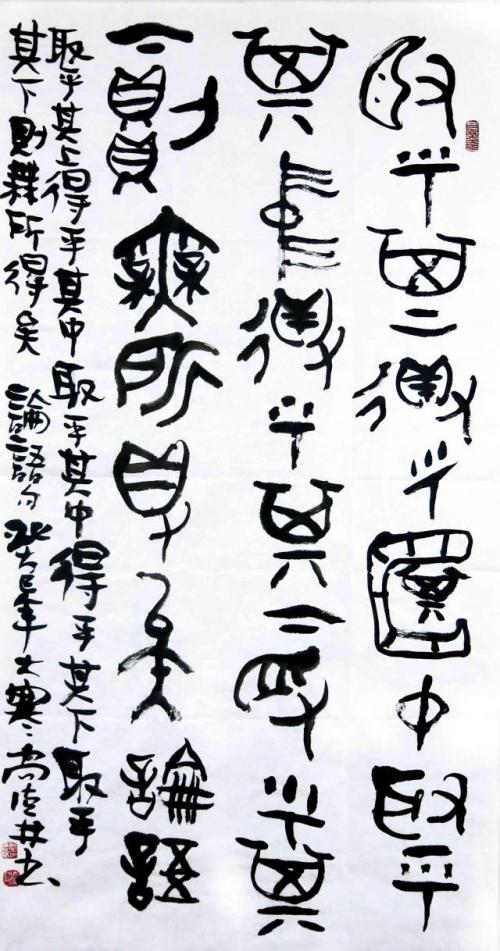 取乎其上得乎其中取乎
其中得乎其下取乎其
下則無所得矣論語
取乎其上得乎其中取乎其中得乎其下取乎
其下則無所得矣 論語句 癸巳年大寒 尚书